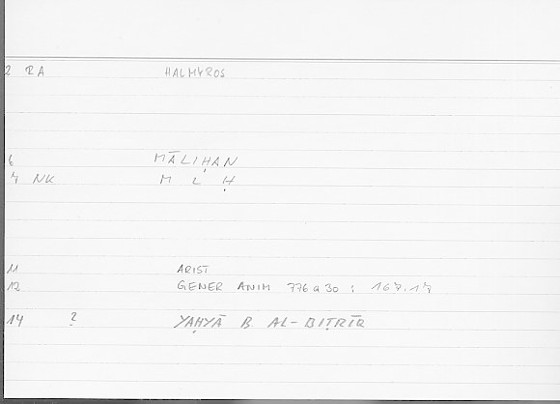 2 RA HALMYROS
6 MĀLIḤAN
7 NK M L Ḥ
11 ARIST
12 GENER ANIM 776a30 : 167.17
14 ? YAḤYĀ B. AL-BIṬRĪQ